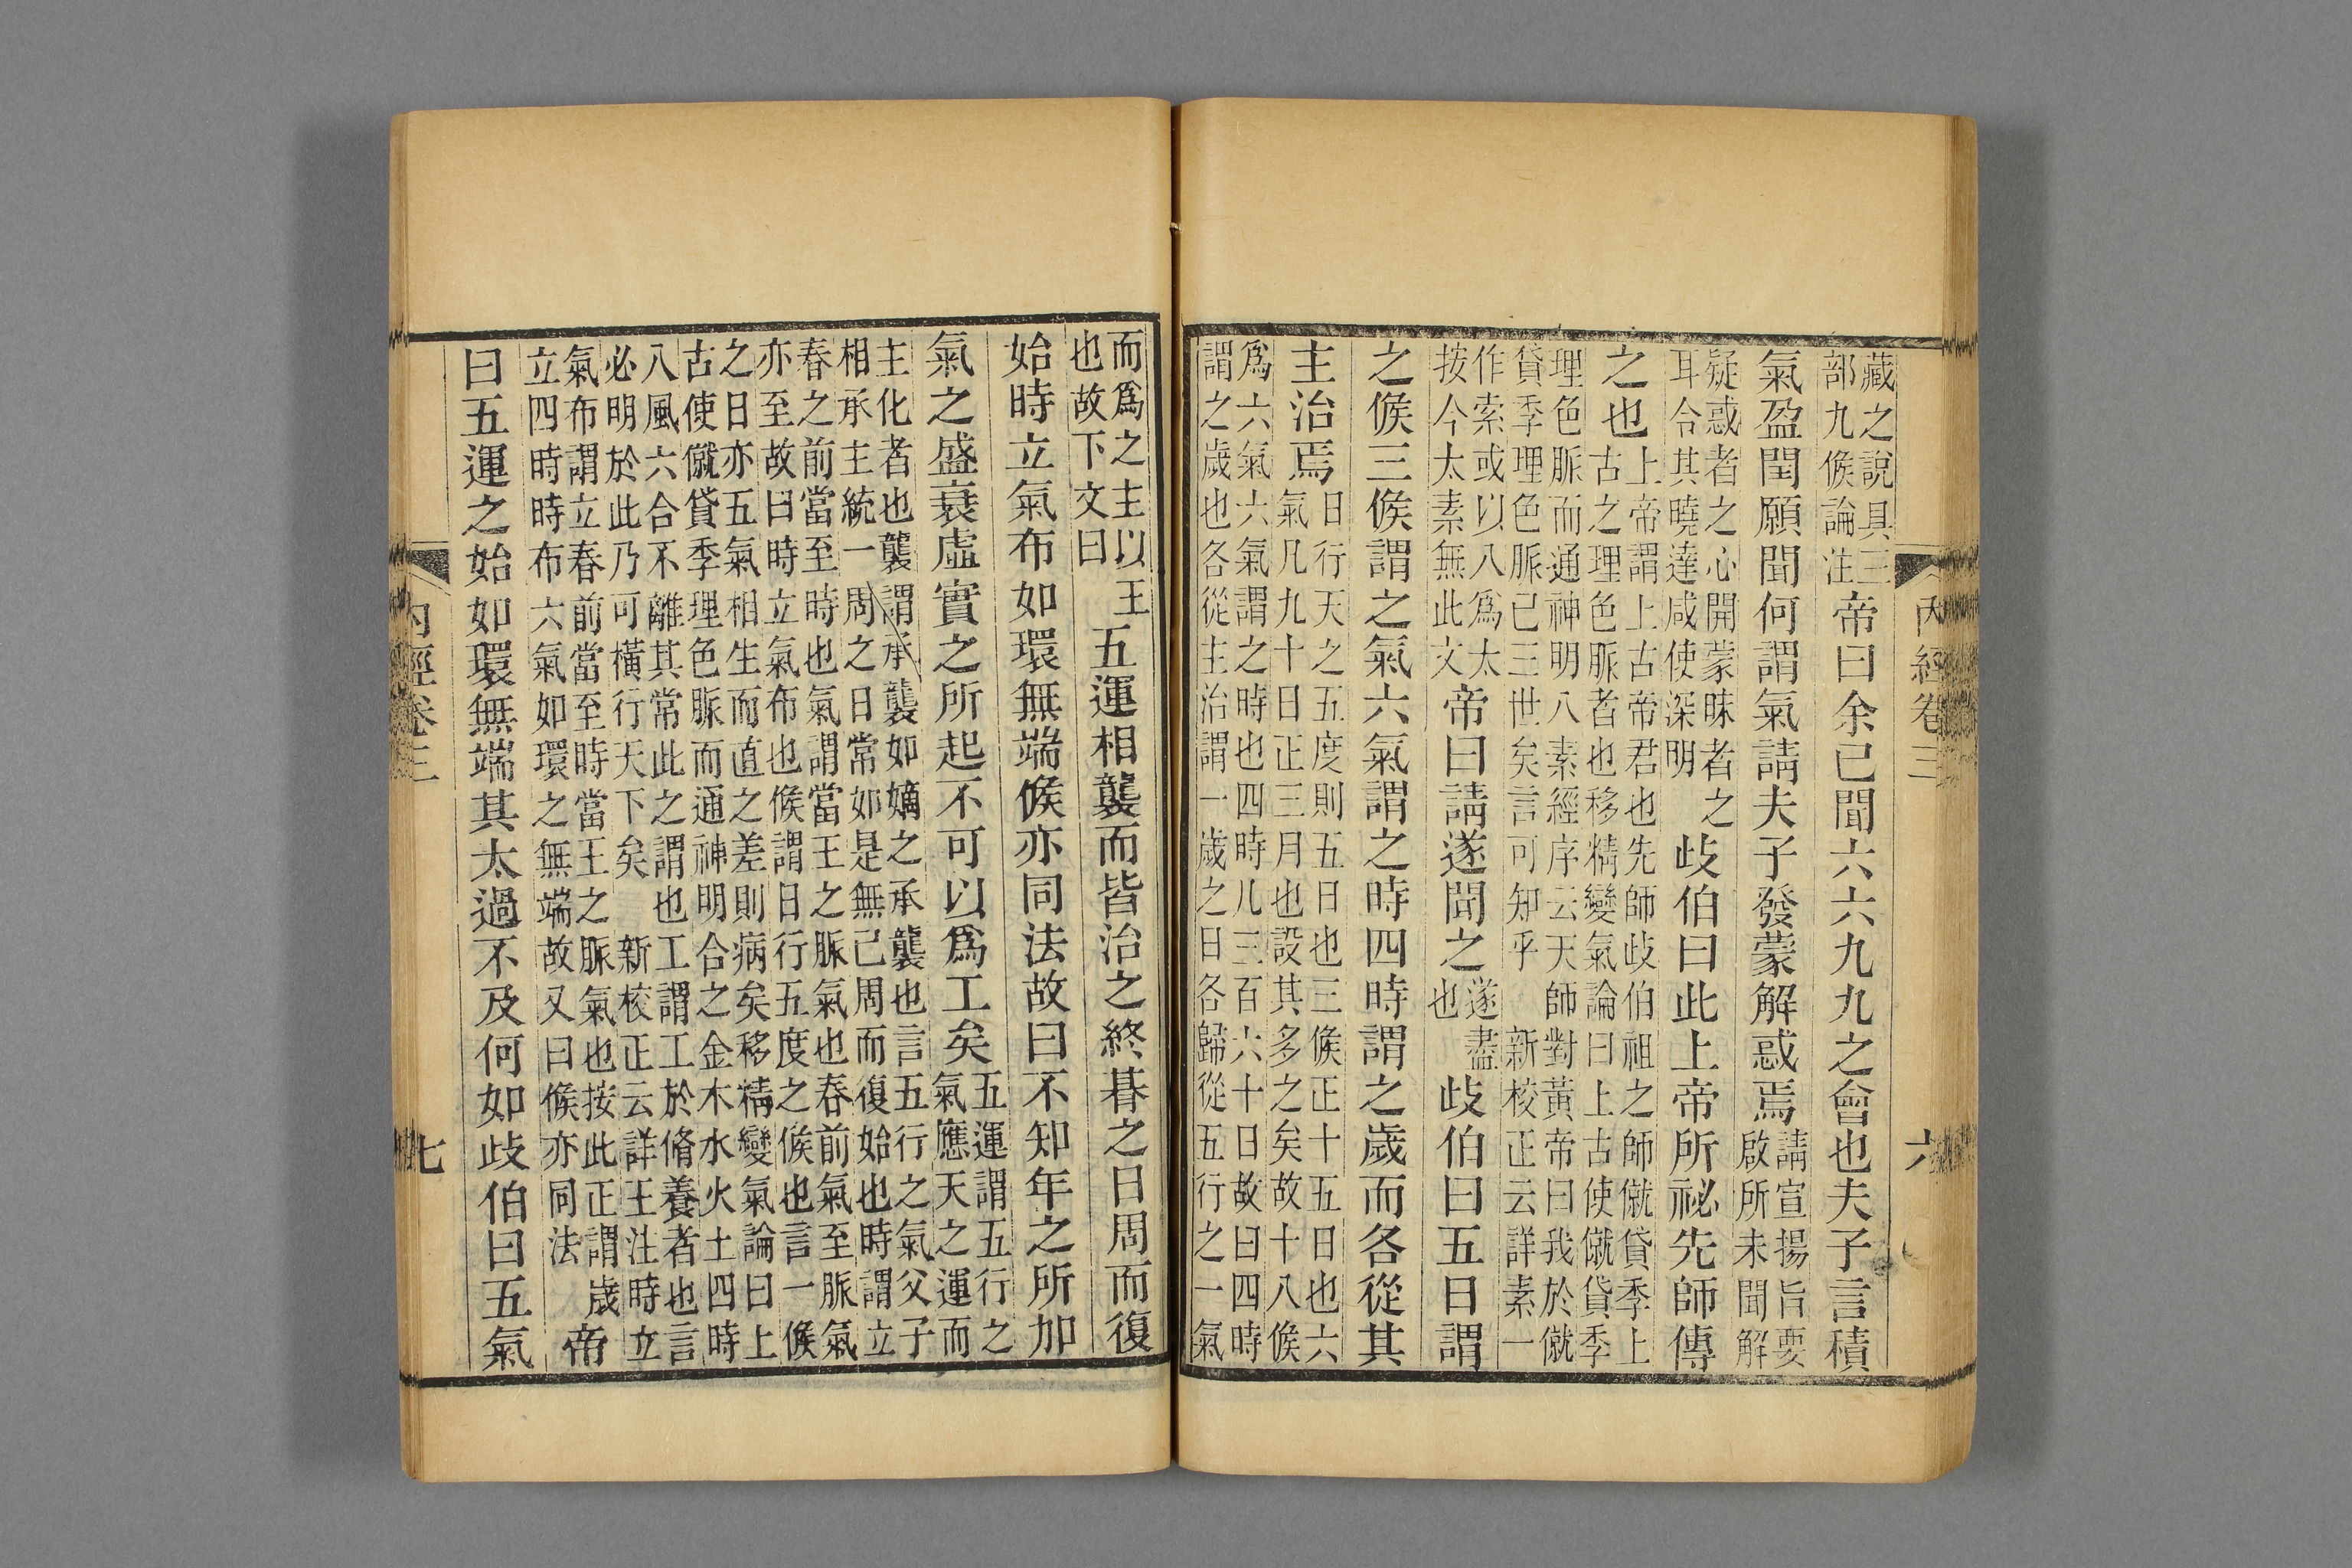 內經卷三 六
藏之說具三
部九候論注
帝曰余已聞六六九九之會也夫子言積
氣盈閏願聞何謂氣請夫子發蒙解惑焉
請宣揚旨要
啟所未聞解
疑惑者之心開蒙昧者之
耳令其曉達咸使深明
歧伯曰此上帝所祕先師傳
之也
上帝謂上古帝君也先師歧伯祖之師僦貸季上
古之理色脈者也移精變氣論曰上古使僦貸季
理色脈而通神明八素經序云天師對黃帝曰我於僦
貸季理色脈已三世矣言可知乎 新校正云詳素一
作索或以八爲太
按今太素無此文
帝曰請遂聞之
遂盡
也
歧伯曰五日謂
之候三候謂之氣六氣謂之時四時謂之歲而各從其
主治焉
日行天之五度則五日也三候正十五日也六
氣凡九十日正三月也設其多之矣故十八候
爲六氣六氣謂之時也四時凡三百六十日故曰四時
謂之歲也各從主治謂一歲之日各歸從五行之一氣
而爲之主以王
也故下文曰
五運相襲而皆治之終朞之日周而復
始時立氣布如環無端候亦同法故曰不知年之所加
氣之盛衰虛實之所起不可以爲工矣
五運謂五行之
氣應天之運而
主化者也襲謂承襲如嫡之承襲也言五行之氣父子
相承主統一周之日常如是無已周而復始也時謂立
春之前當至時也氣謂當王之脈氣也春前氣至脈氣
亦至故曰時立氣布也候謂日行五度之候也言一候
之日亦五氣相生而直之差則病矣移精變氣論曰上
古使僦貸季理色脈而通神明合之金木水火土四時
八風六合不離其常此之謂也工謂工於脩養者也言
必明於此乃可橫行天下矣 新校正云詳王注時立
氣布謂立春前當至時當王之脈氣也按此正謂歲
立四時時布六氣如環之無端故又曰候亦同法
帝
曰五運之始如環無端其太過不及何如歧伯曰五氣
內經卷三 七